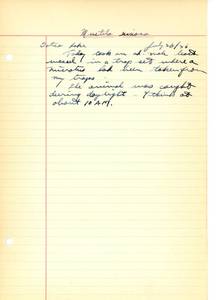 Mustela rixosa
July 20/26
Today took an ad. male least
weasel in a trap set where a
microtus had been taken from
my traps
The animal was caught
during daylight - I think at
about 10 A.M.